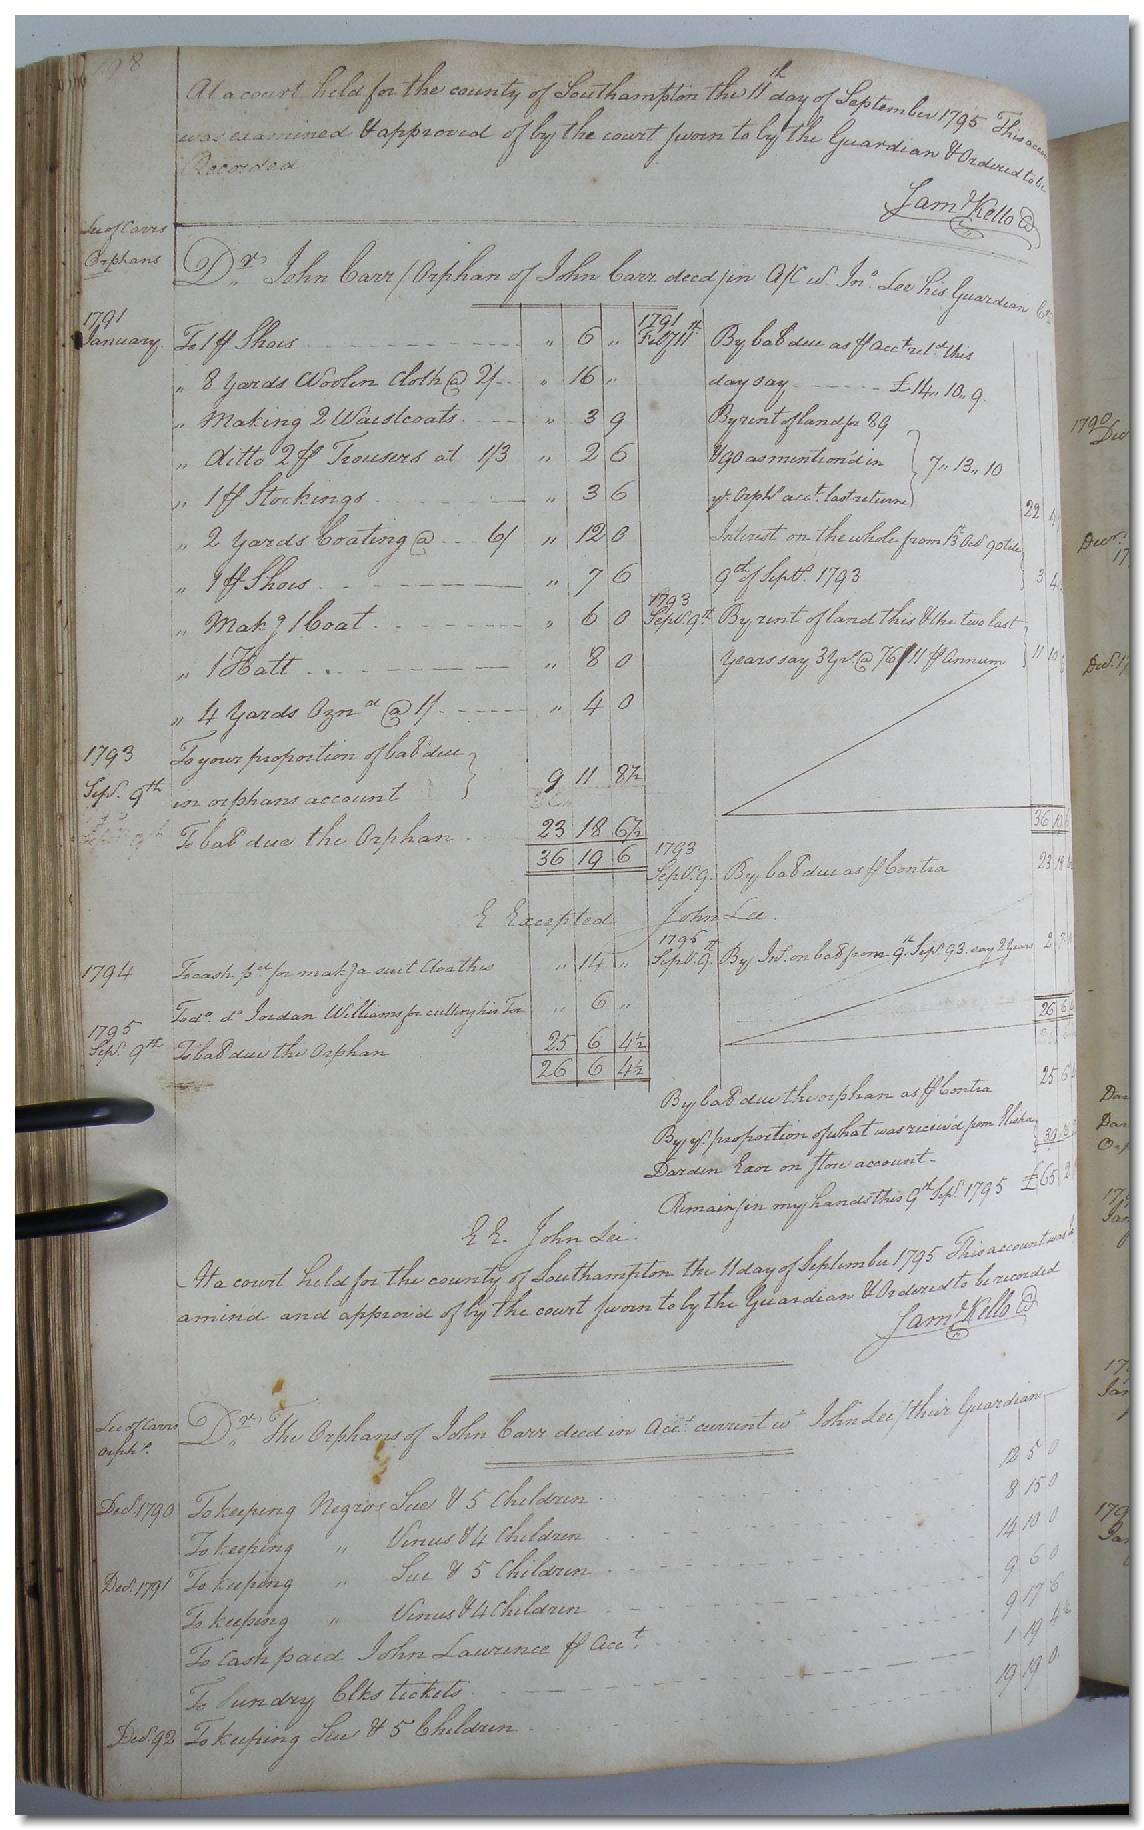 198
At a court held for the county of Southampton the 11th day of September 1795 This accou
was examined & approved of by the court sworn to by the Guardian & Ordered to be
Recorded
Saml Kello
Lee of Carrs
Orphans
Dr John Carr / Orphan of John Carr decd / in A/C wt Jno. Lee his Guardian Cr
1791
January To 1 pr Shoes " 6 "
" 8 Yards Woolen Cloth @ 2/ " 16 "
" Making 2 Waistcoats " 3 9
" ditto 2 pr Trousers at 1/3 " 2 6
" 1 pr Stockings " 3 6
" 2 Yards Coating @ 6/ " 12 0
" 1 pr Shoes " 7 6
" Makg 1 Coat " 6 0
" 1 Hatt " 8 0
" 4 Yards Ozna @ 1/ " 4 0
1793
Sepr. 9th To your proportion of bal due
in orphans account 9 11 8½
To bal due the Orphan 23 18 6½
36 19 6
1791
By bal due as pr acct retd this
day say £14,, 10,, 9
By rent of land for 89
& 90 as mention'd in
yr. Orphs acct. last return 7,, 13,, 10
22
Interest on the whole from 13th Octr 90 till
9th of Septr. 1793 3 4
1793
Sepr. 9th By rent of land this & the two last
Years say 3 Yrs. @ 76/11 pr Annum 11 10
36
1793
Sepr. 9. By bal due as pr Contra 23 18
E Excepted John Lee.
1794 To cash pd for makg a suit Cloathes " 14 "
To do. do Jordan Williams for cutting his " 6 "
1795
Sepr. 9th To bal due the Orphan 25 6 4½
26 6 4½
1795
Sepr. 9th By Int. on bal from 9th Sepr. 93 say 2 Years 2 7
26 6
By bal due the orphan as pr Contra 25 6
By yr. proportion of what was receiv'd from Elisha
Darden Exor on store account 39
Remain / in my hands this 9th Sepr. 1795 £65 2
E E. John Lee.
At a court held for the county of Southampton the 11 day of September 1795 This account was
amined and approv'd of by the court sworn to by the Guardian & Ordered to be recorded
Saml Kello
Lee of Carrs
Orphs.
Dr The Orphans of John Carr decd in Acct. current wt John Lee / their Guardian
Decr. 1790 To keeping Negros Sue & 5 Children 12 5 0
To keeping " Venus & 4 Children 8 15 0
Decr. 1791 To keeping " Sue & 5 Children 14 10 0
To keeping " Venus & 4 Children 9 6 0
To Cash paid John Lawrence pr Acct. 9 17 6
To Sundry Clks tickets 1 19 4½
Decr. 92 To keeping Sue & 5 Children 19 19 0